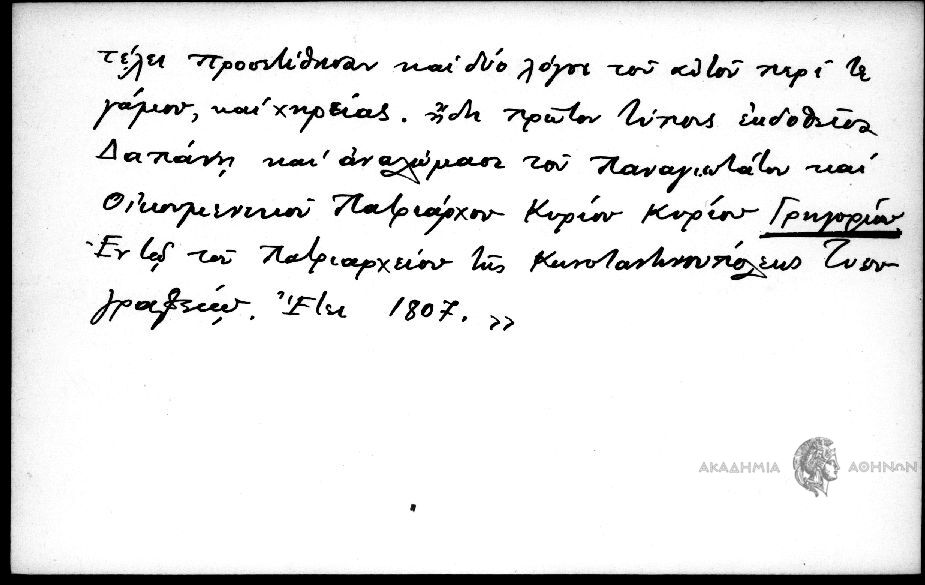 τέλει προσετίθησαν καὶ δύο λόγοι τοῦ αὐτοῦ περί τε
γάμου, καὶ χηρείας. ἤδη πρῶτον τύποις ἐκδοθεῖσα
Δαπάνῃ καὶ ἀναλώμασι τοῦ Παναγιωτάτου καὶ
Οἰκουμενικοῦ Πατριάρχου Κυρίου Κυρίου Γρηγορίου
Ἐν τῷ τοῦ Πατριαρχείου τῆς Κωνσταντινουπόλεως Τυπο-
γραφείῳ. Ἔτει 1807. »
ΑΚΑΔΗΜΙΑ ΑΘΗΝΩΝ